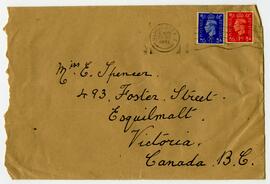 Miss E. Spencer.
493. Foster Street.
Esquimalt.
Victoria.
Canada. B.C.